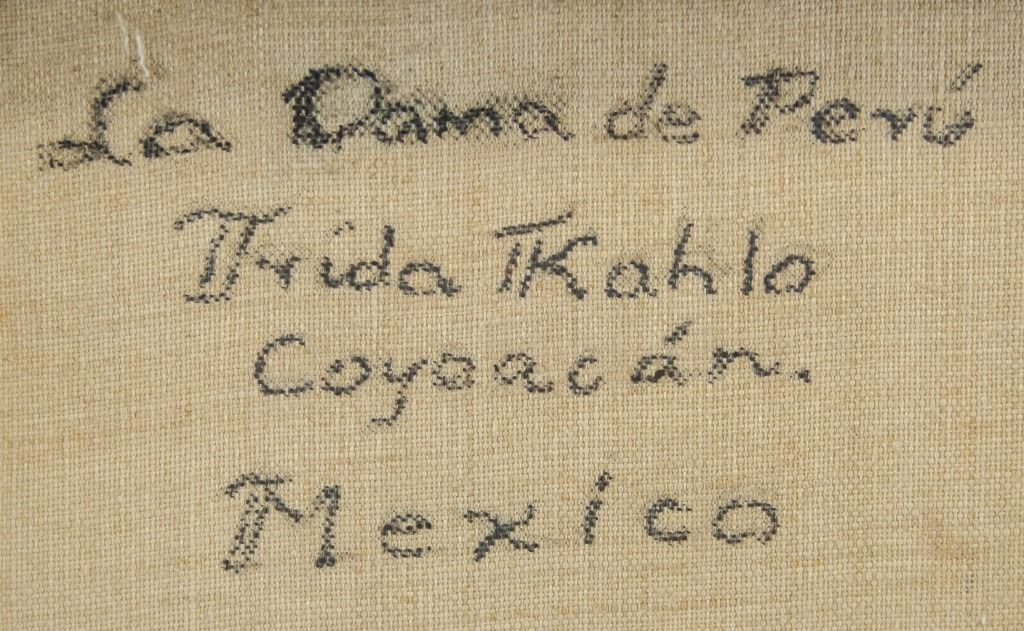 La Dama de Perú
Frida Kahlo
Coyoacán.
Mexico